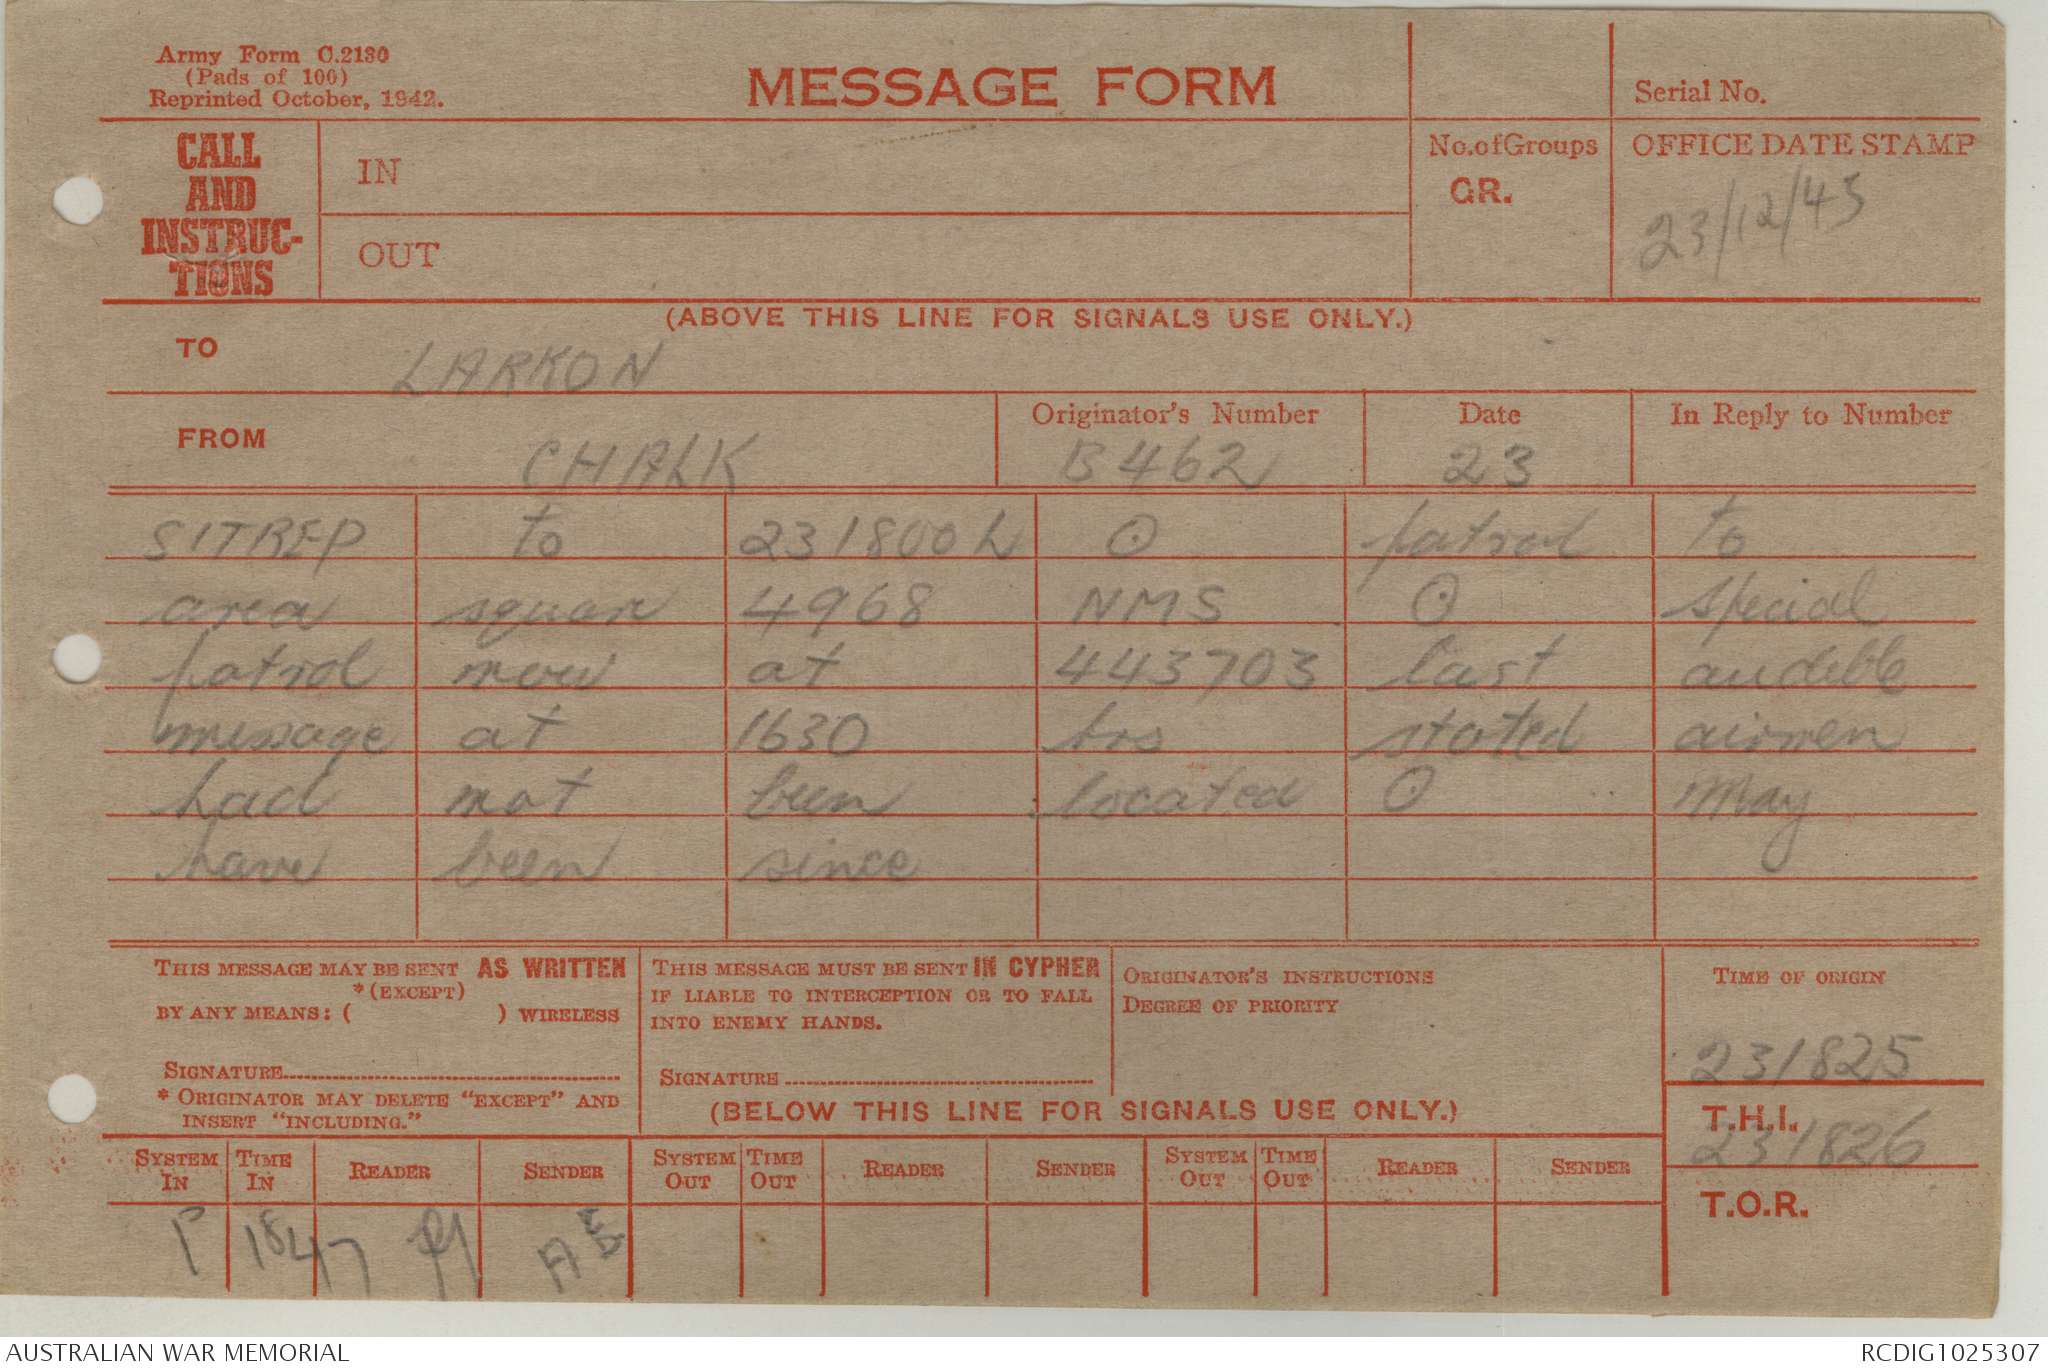 Army Form C.2130
(Pads of 100)
Reprinted October, 1942.
MESSAGE FORM
Serial No.
CALL AND INSTRUC-TIONS
IN
OUT
No. of Groups
GR.
OFFICE DATE STAMP
23/12/43
(ABOVE THIS LINE FOR SIGNALS USE ONLY.)
TO LARKON
FROM CHALK
Originator's Number B462
Date 23
In Reply to Number
SITREP to 231800L ⊙ patrol to
area square 4968 NMS ⊙ special
patrol now at 443703 last audible
message at 1630 hrs stated airmen
had not been located ⊙ May
have been since
THIS MESSAGE MAY BE SENT AS WRITTEN
*(EXCEPT)
BY ANY MEANS: ( ) WIRELESS
SIGNATURE
* ORIGINATOR MAY DELETE "EXCEPT" AND
INSERT "INCLUDING."
THIS MESSAGE MUST BE SENT IN CYPHER
IF LIABLE TO INTERCEPTION OR TO FALL
INTO ENEMY HANDS.
SIGNATURE
ORIGINATOR'S INSTRUCTIONS
DEGREE OF PRIORITY
TIME OF ORIGIN
231825
T.H.I.
231826
T.O.R.
(BELOW THIS LINE FOR SIGNALS USE ONLY.)
SYSTEM IN TIME IN READER SENDER SYSTEM OUT TIME OUT READER SENDER SYSTEM OUT TIME OUT READER SENDER
P 1847
AUSTRALIAN WAR MEMORIAL
RCDIG1025307